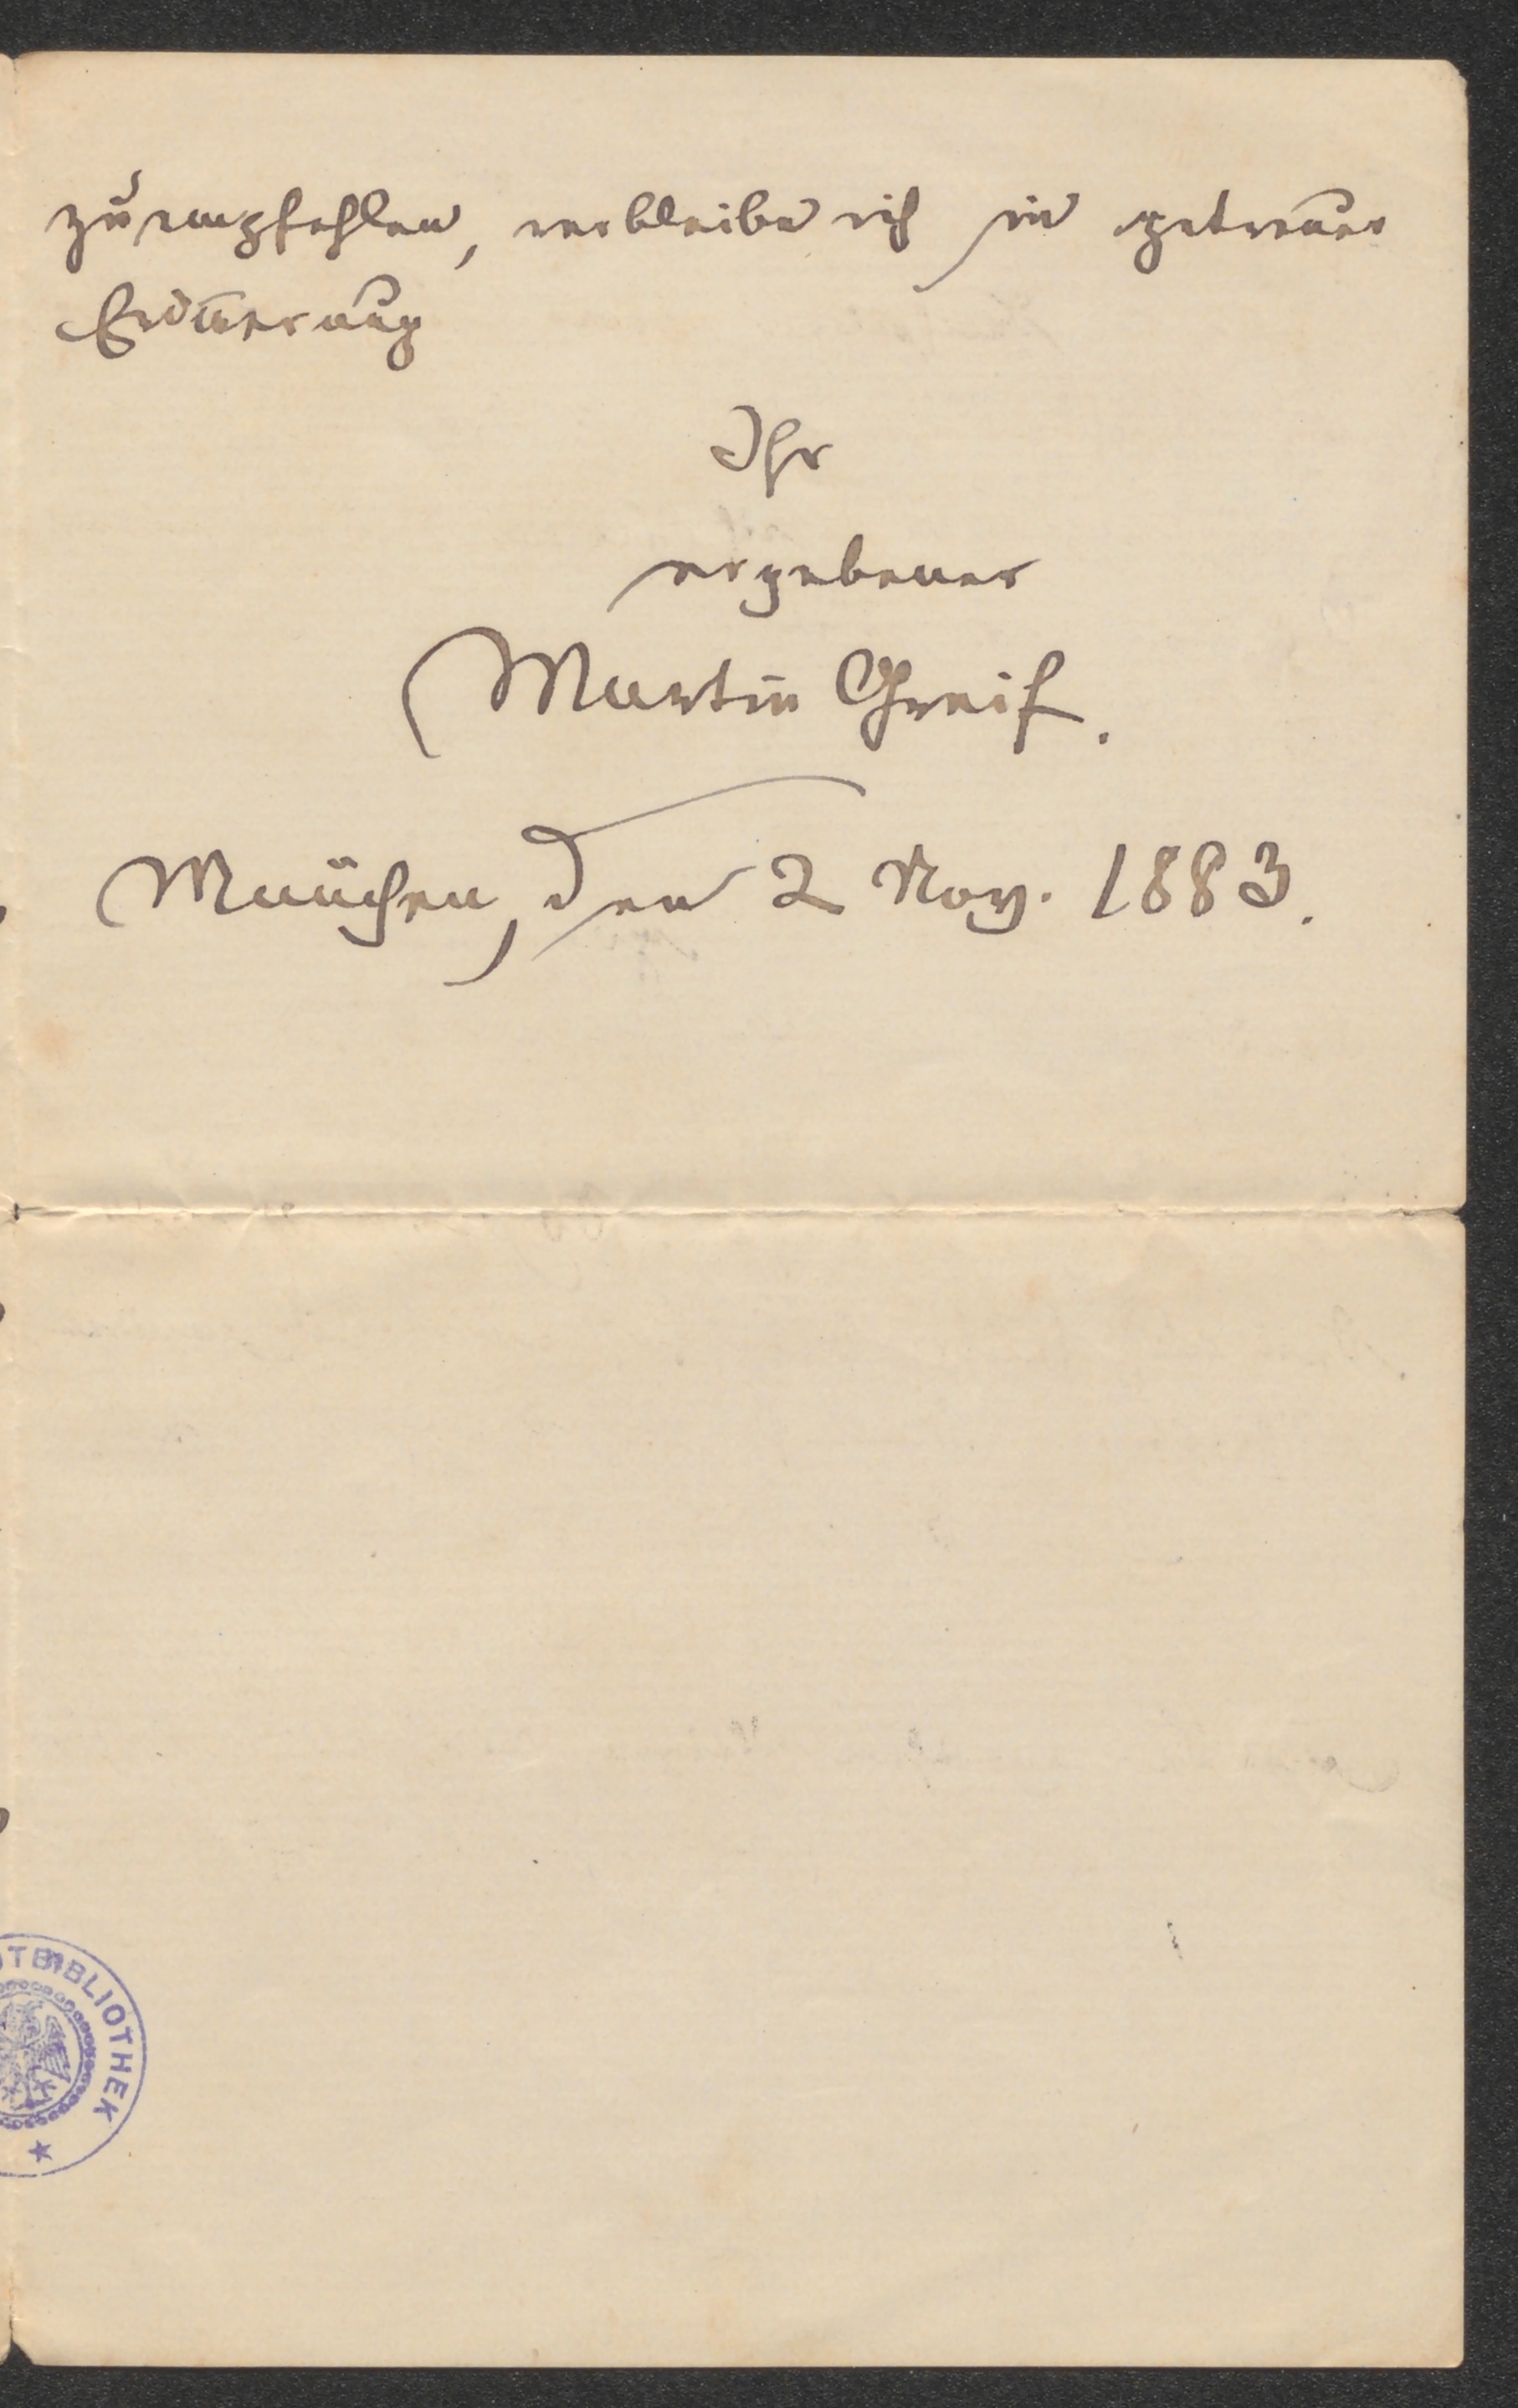 zu empfehlen, verbleibe ich in getreuer
Erin̅erung
Ihr
ergebener
Martin Greif.
München, den 2 Nov. 1883.
TBIBLIOTHEK